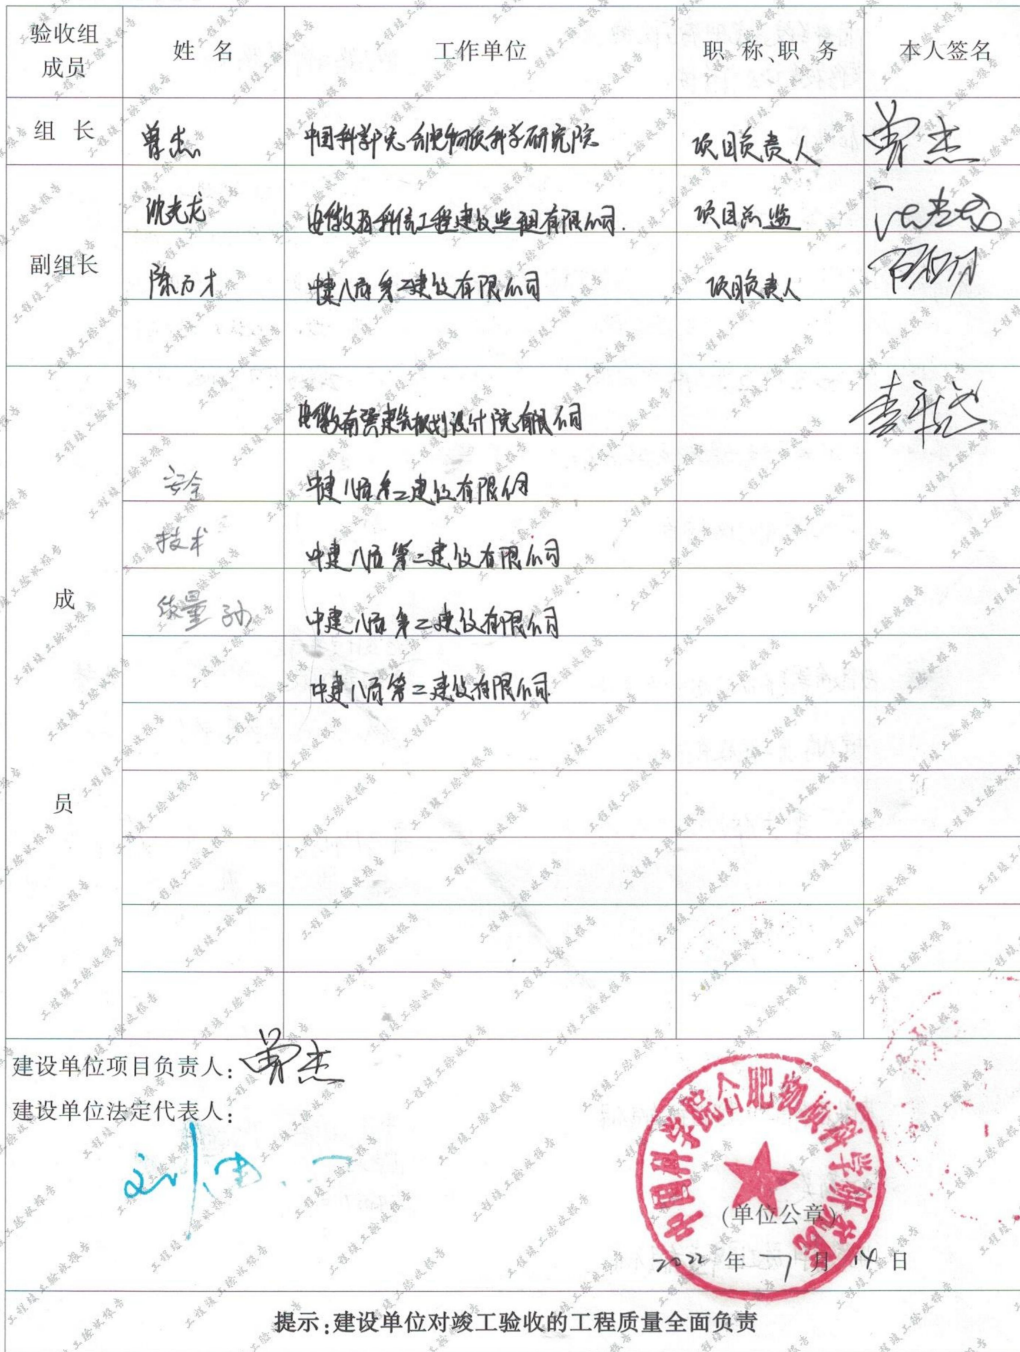 验收组
成员
姓 名
工作单位
职 称、职 务
本人签名
组 长
曾杰
中国科学院合肥物质科学研究院
项目负责人
曾杰
副组长
沈光龙
工程建设监理有限公司.
项目总监
陈万才
中建八局第二建设有限公司
项目负责人
成
员
建筑规划设计院有限公司
安全
中建八局第二建设有限公司
技术
中建八局第二建设有限公司
质量 孙
中建八局第二建设有限公司
中建八局第二建设有限公司
建设单位项目负责人:曾杰
建设单位法定代表人:
中国科学院合肥物质科学研究院
(单位公章)
2022 年 7 月 14 日
提示:建设单位对竣工验收的工程质量全面负责
工程竣工验收报告